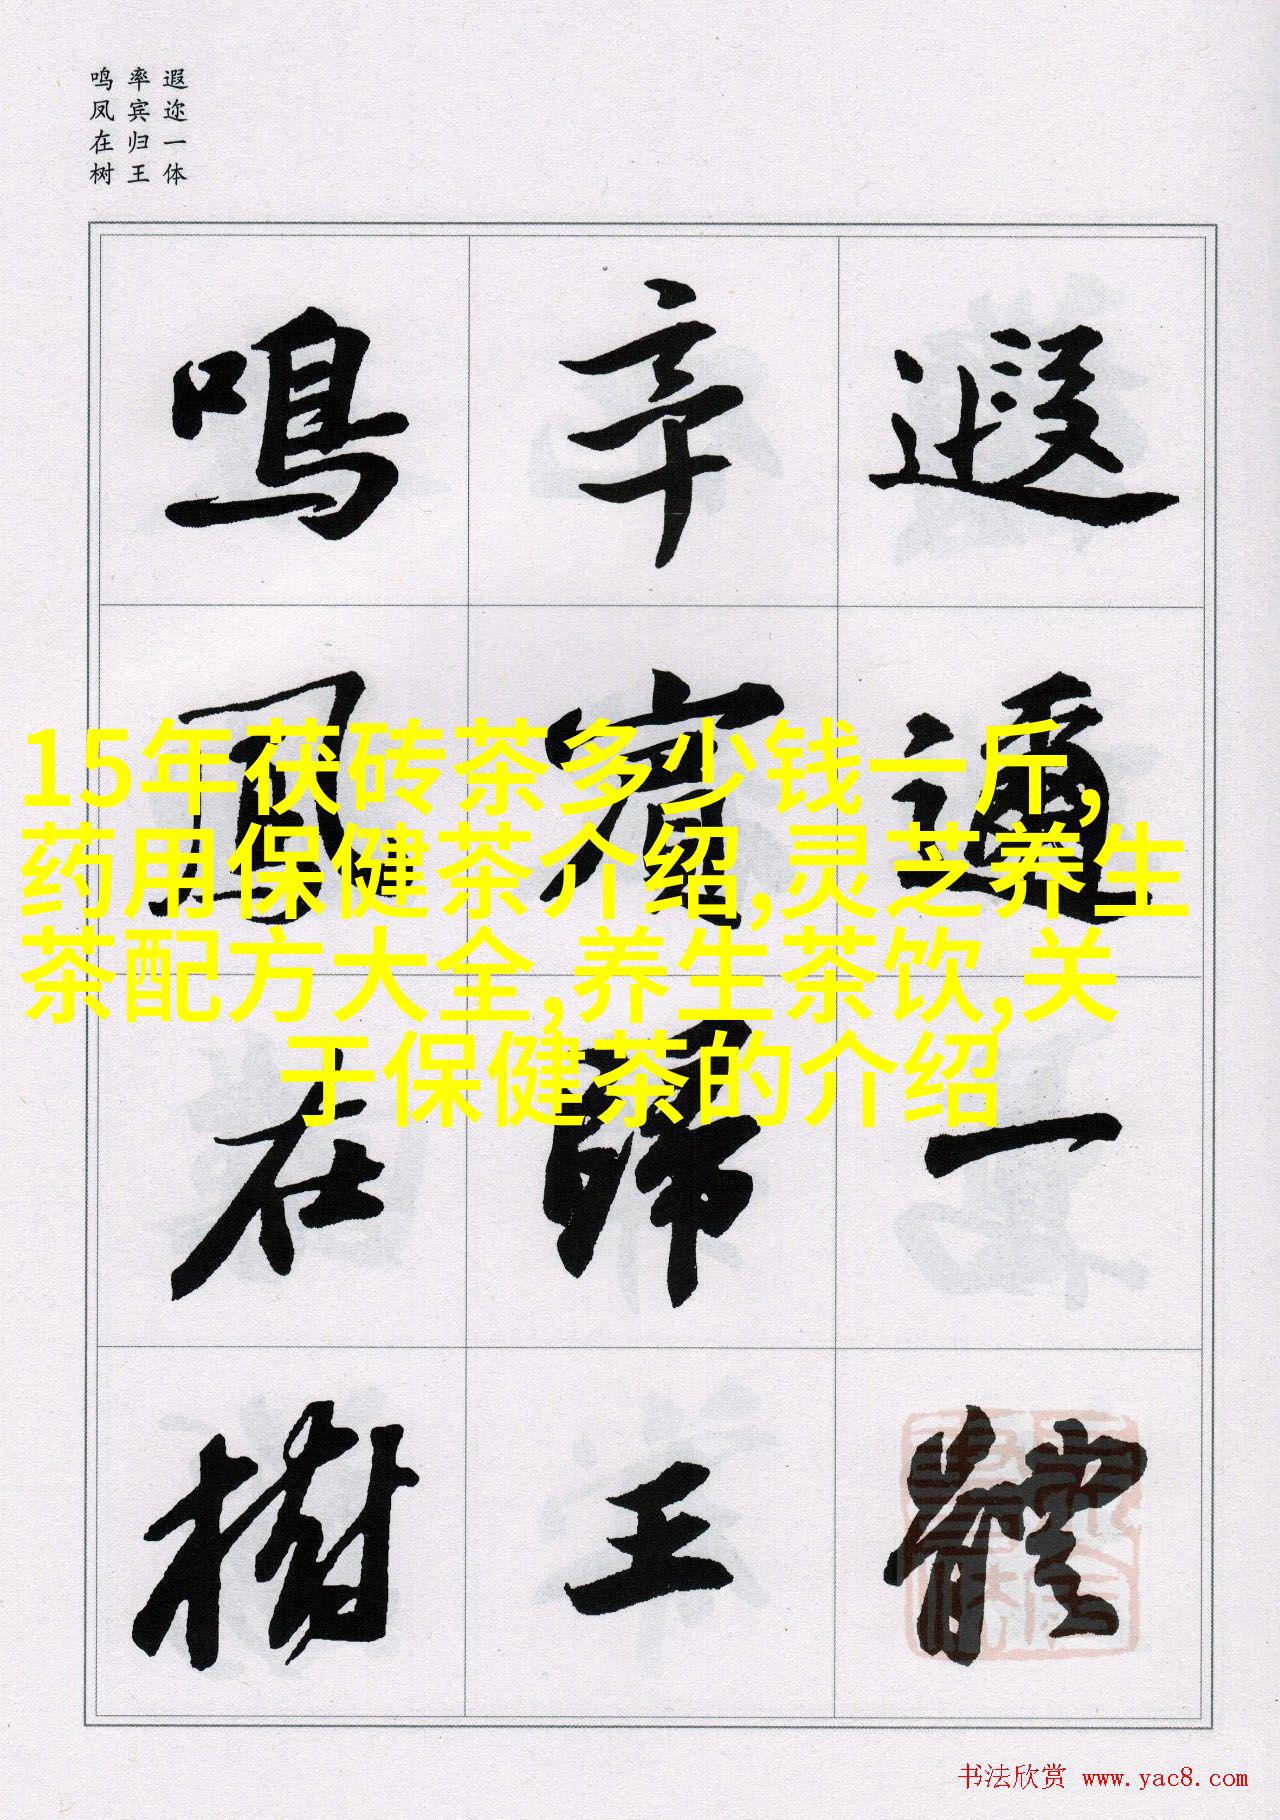 遐迩一体
率宾归王
鸣凤在树
遐邇一體
率賓歸王
鳴鳳在樹
15年茯砖茶多少钱一斤,
药用保健茶介绍,灵芝养生
茶配方大全,养生茶饮,关
于保健茶的介绍
书法欣赏 www.yac8.com